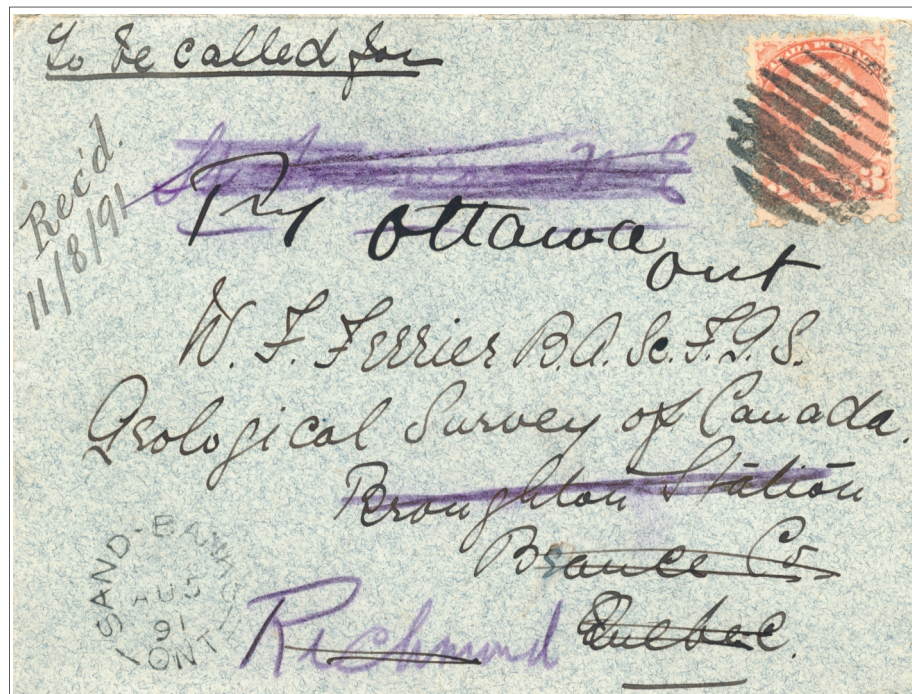 To be called for
CANADA POSTAGE
3
Rec'd.
11/8/91
Ottawa
Ont
W. F. Ferrier B.A.Sc. F.G.S.
Geological Survey of Canada.
Broughton Station
Beauce Co
Quebec.
Richmond
SAND-BANKS
AU
91
ONT